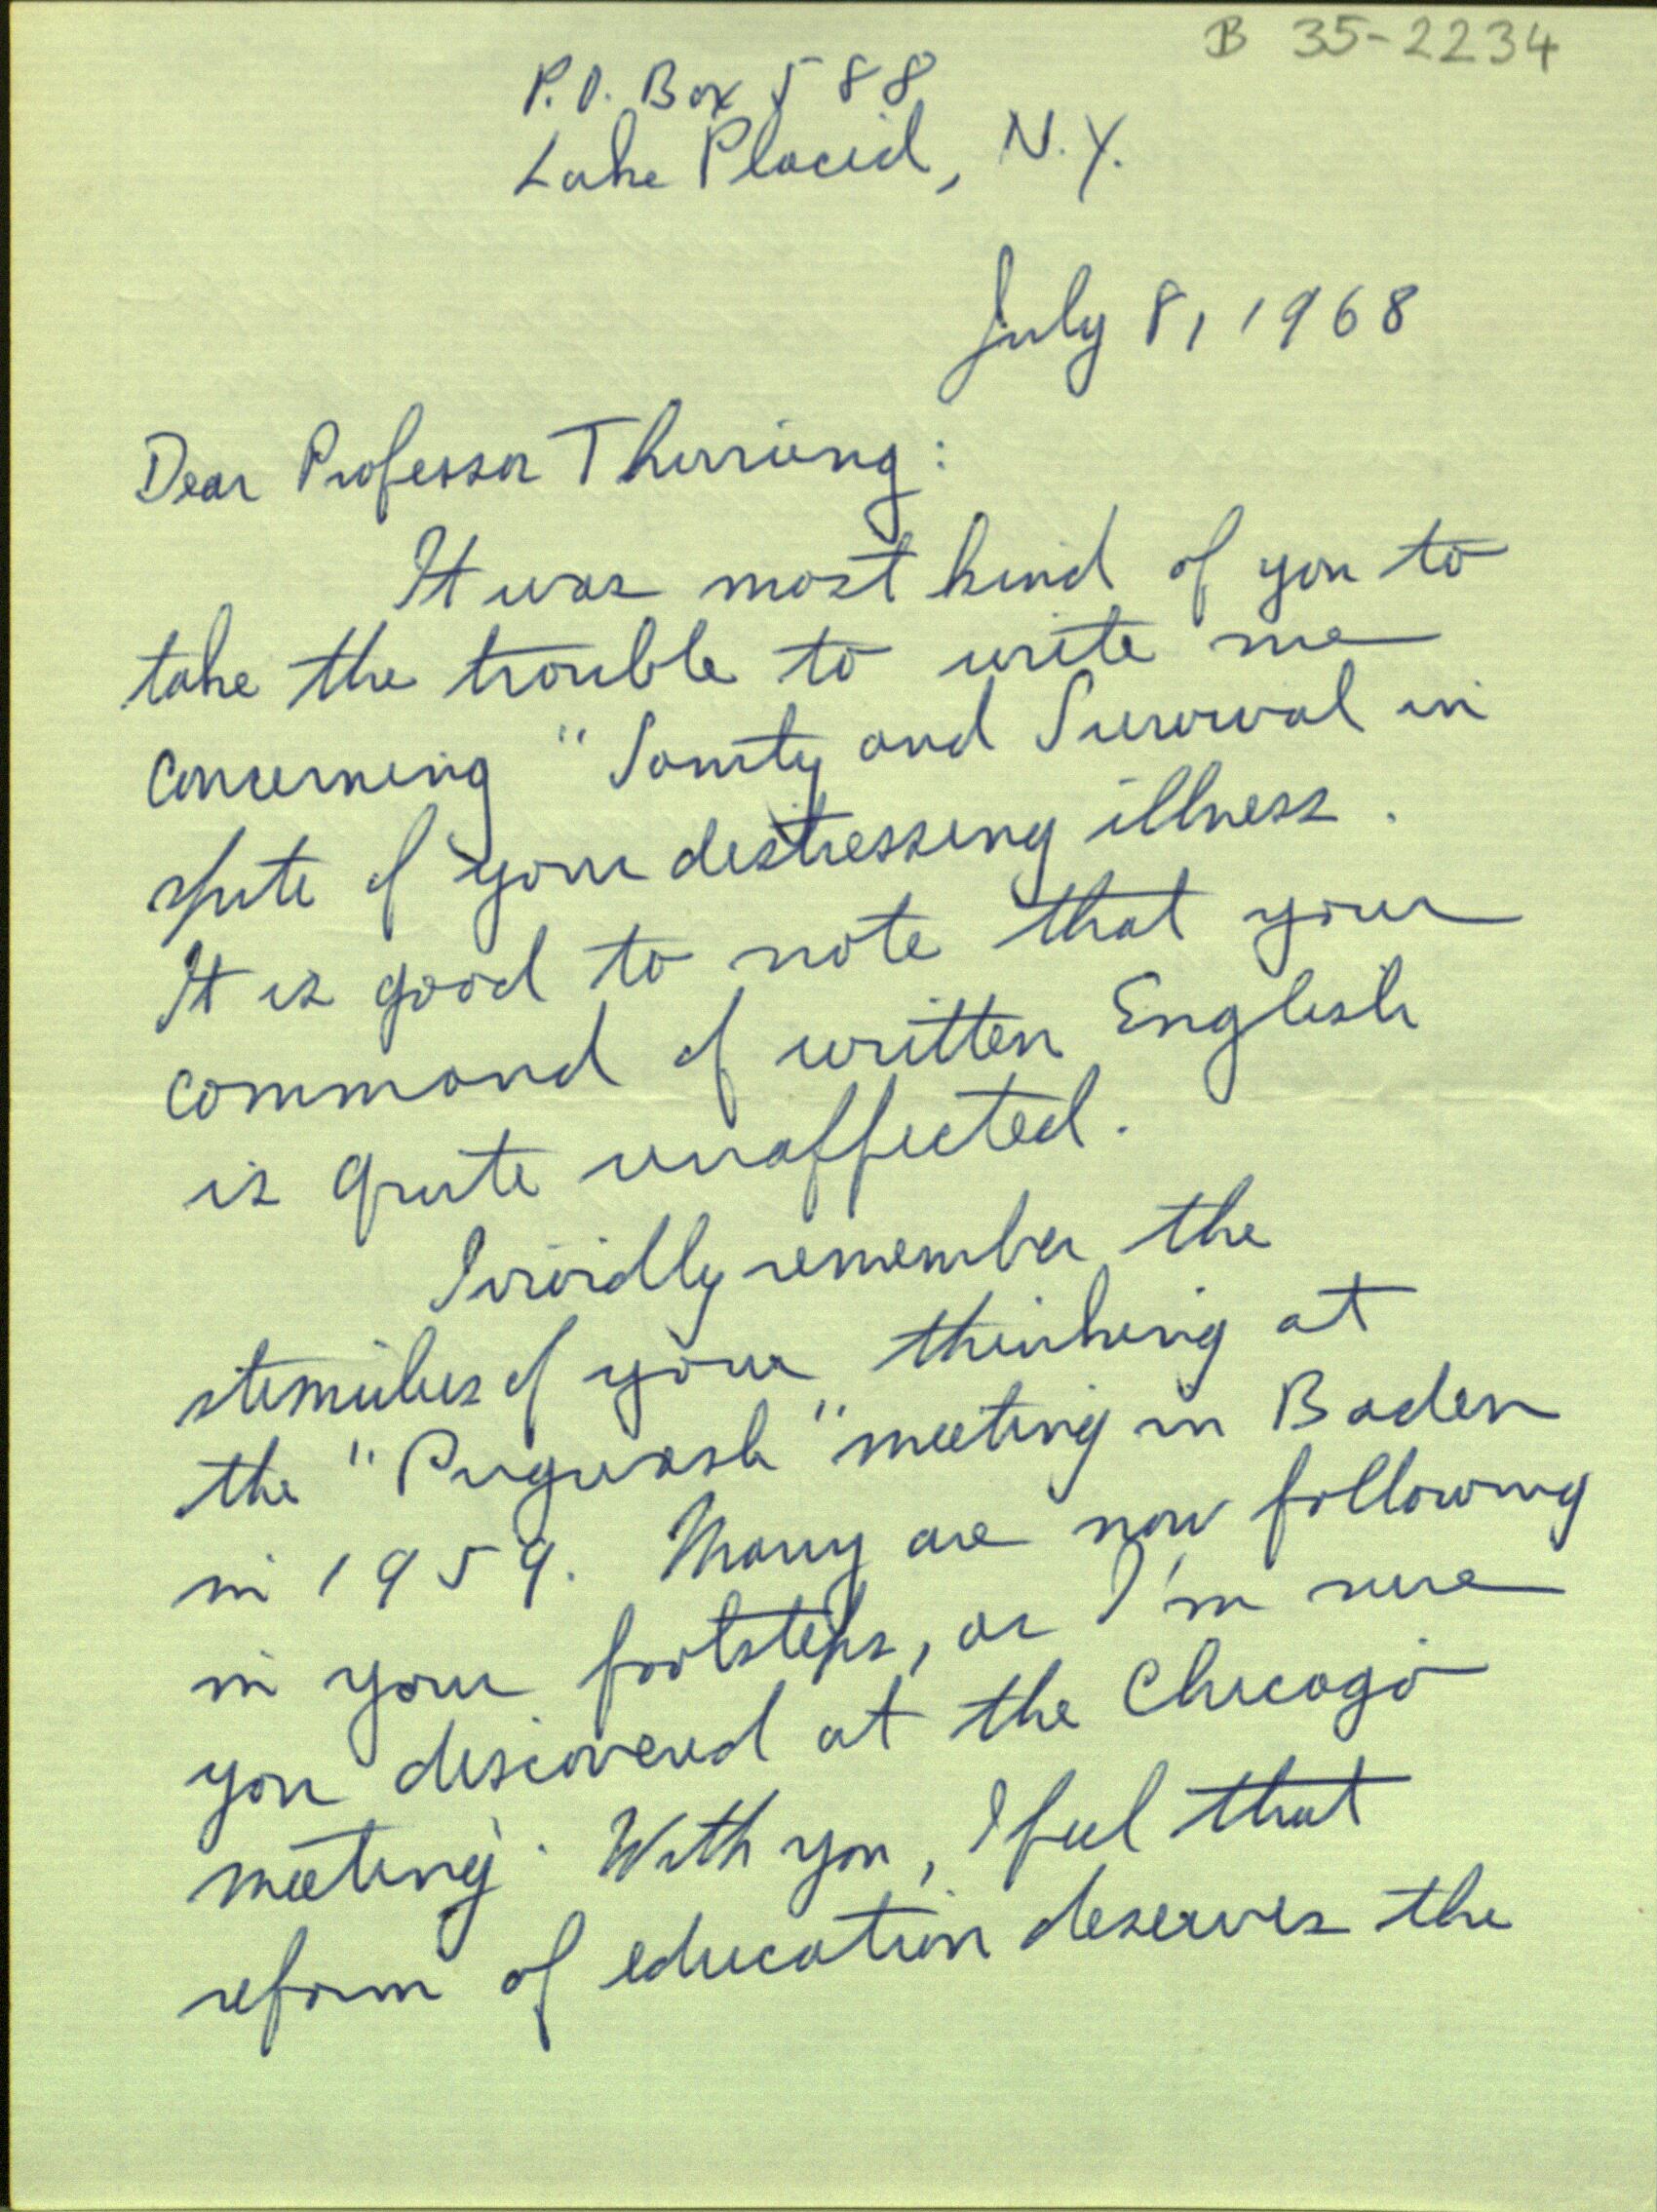 B 35-2234
P.O. Box 588
Lake Placid, N.Y.
July 8, 1968
Dear Professor Thirring:
It was most kind of you to
take the trouble to write me
concerning "Sanity and Survival in
spite of your distressing illness.
It is good to note that your
command of written English
is quite unaffected.
I vividly remember the
stimulus of your thinking at
the "Pugwash" meeting in Baden
in 1959. Many are now following
in your footsteps, as I'm sure
you discovered at the Chicago
meeting. With you, I feel that
reform of education deserves the